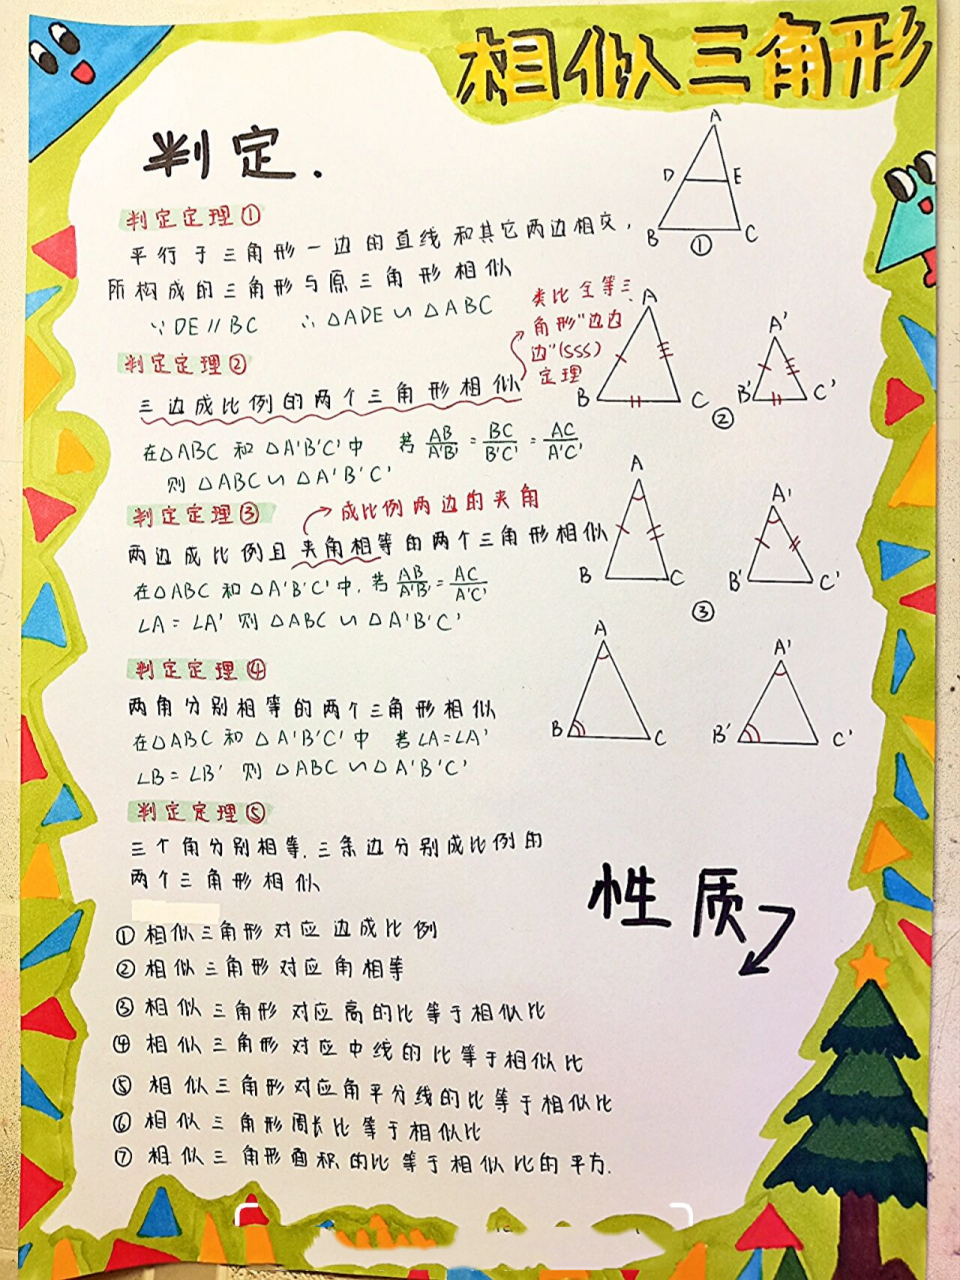 相似三角形
判定.
判定定理①
平行于三角形一边的直线和其它两边相交,
所构成的三角形与原三角形相似
∵DE//BC ∴△ADE∽△ABC
A
D E
B C
①
判定定理②
类比全等三
角形"边边
边"(SSS)
定理
三边成比例的两个三角形相似
在△ABC和△A'B'C'中 若AB/A'B'=BC/B'C'=AC/A'C'
则△ABC∽△A'B'C'
A A'
B C B' C'
②
判定定理③
成比例两边的夹角
两边成比例且夹角相等的两个三角形相似
在△ABC和△A'B'C'中,若AB/A'B'=AC/A'C'
∠A=∠A' 则△ABC∽△A'B'C'
A A'
B C B' C'
③
判定定理④
两角分别相等的两个三角形相似
在△ABC和△A'B'C'中 若∠A=∠A'
∠B=∠B' 则△ABC∽△A'B'C'
A A'
B C B' C'
判定定理⑤
三个角分别相等,三条边分别成比例的
两个三角形相似
性质
①相似三角形对应边成比例
②相似三角形对应角相等
③相似三角形对应高的比等于相似比
④相似三角形对应中线的比等于相似比
⑤相似三角形对应角平分线的比等于相似比
⑥相似三角形周长比等于相似比
⑦相似三角形面积的比等于相似比的平方.